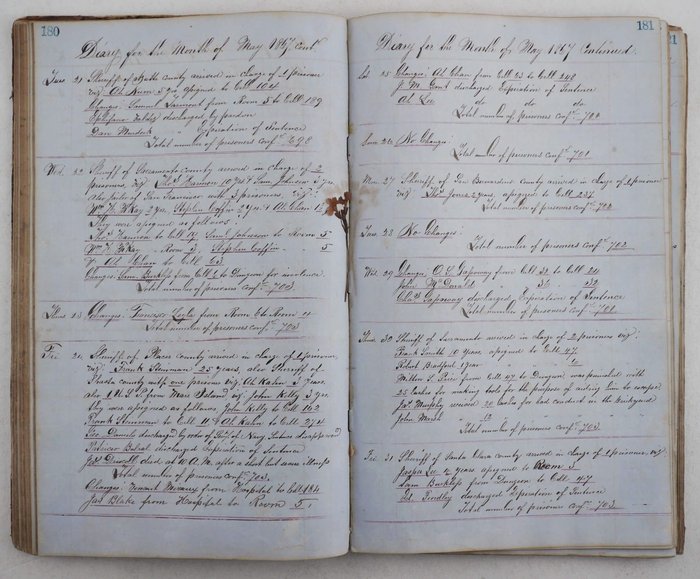 180
Diary for the Month of May 1867 Cont'd
Tues 21 Sheriff of Butte county arrived in charge of 1 prisoner
viz Ah Kum 3 yrs assigned to Cell 104
Changes Samuel Sarment from Room 5 to Cell 189
discharged by pardon
Dan Murdock " Expiration of Sentence
Total number of prisoners conf'd 698
Wed. 22 Sheriff of Sacramento county arrived in charge of 2
prisoners, viz Thos Harmon 10 yrs & Saml Johnson 3 yrs
also Jailer of San Francisco with 3 prisoners, viz:
Wm F. McKay 2 yrs. Stephen Coffin 2 yrs & Ah Chan 1
They were assigned as follows:
Thos Harmon to Cell 19 Saml Johnson to Room 5
Wm F. McKay - Room 3. Stephen Coffin - 5
Ah Chan to Cell 63
Changes from Cell 2 to Dungeon for insolence
Total number of prisoners conf'd 703
Thurs 23 Changes. Francisco from Room 6 to Room 4
Total number of prisoners conf'd 703
Fri 24 Sheriff of Placer county arrived in charge of 1 prisoner,
viz. Frank Stenman 25 years, also Sheriff of
Shasta county with one prisoner viz. Ah Kahn 3 years.
also 1 U.S.P. from Mare Island viz John Kelly 3 yrs.
They were assigned as follows, John Kelly to Cell 162
Frank Stenman to Cell 11 & Ah Kahn to Cell 274
Geo Daniels discharged by order of Secty of Navy
discharged Expiration of Sentence
Jas Driscoll died at 10 A.M. after a short but severe illness
Total number of prisoners conf'd 703.
Changes. from Hospital to Cell 184
Jas Blake from Hospital to Room 5.
181
Diary for the Month of May 1867 Continued.
Sat 25 Changes. Ah Chan from Cell 63 to Cell 248
J. M. Gant discharged Expiration of Sentence
Ah Lee do do do
Total number of prisoners conf'd 701
Sun 26 No Changes.
Total number of prisoners conf'd 701
Mon. 27 Sheriff of San Bernardino county arrived in charge of 1 prisoner
viz Thos Jones 2 years assigned to Cell 237
Total number of prisoners conf'd 702
Tues 28 No Changes:
Total number of prisoners conf'd 702
Wed. 29 Changes O. C. Gassaway from Cell 32 to Cell 24
John McDonald 36 - 32
Chas Gassaway discharged Expiration of Sentence
Total number of prisoners conf'd 701
Thurs 30 Sheriff of Sacramento arrived in charge of 2 prisoners viz:
Frank Smith 10 years, assigned to Cell 47
Robert Bradford 1 year " " 10
Milton S. Price from Cell 47 to Dungeon, was punished with
25 lashes for making tools for the purpose of aiding him to escape
Jas Murphy received 21 lashes for bad conduct in the Brickyard
John Marsh " 12 " " "
Total number of prisoners conf'd 703.
Fri. 31 Sheriff of Santa Clara county arrived in charge of 1 prisoner, viz
Joseph Lee 2 years assigned to Room 5
from Dungeon to Cell 47
Ed. Findley discharged Expiration of Sentence
Total number of prisoners conf'd 703.